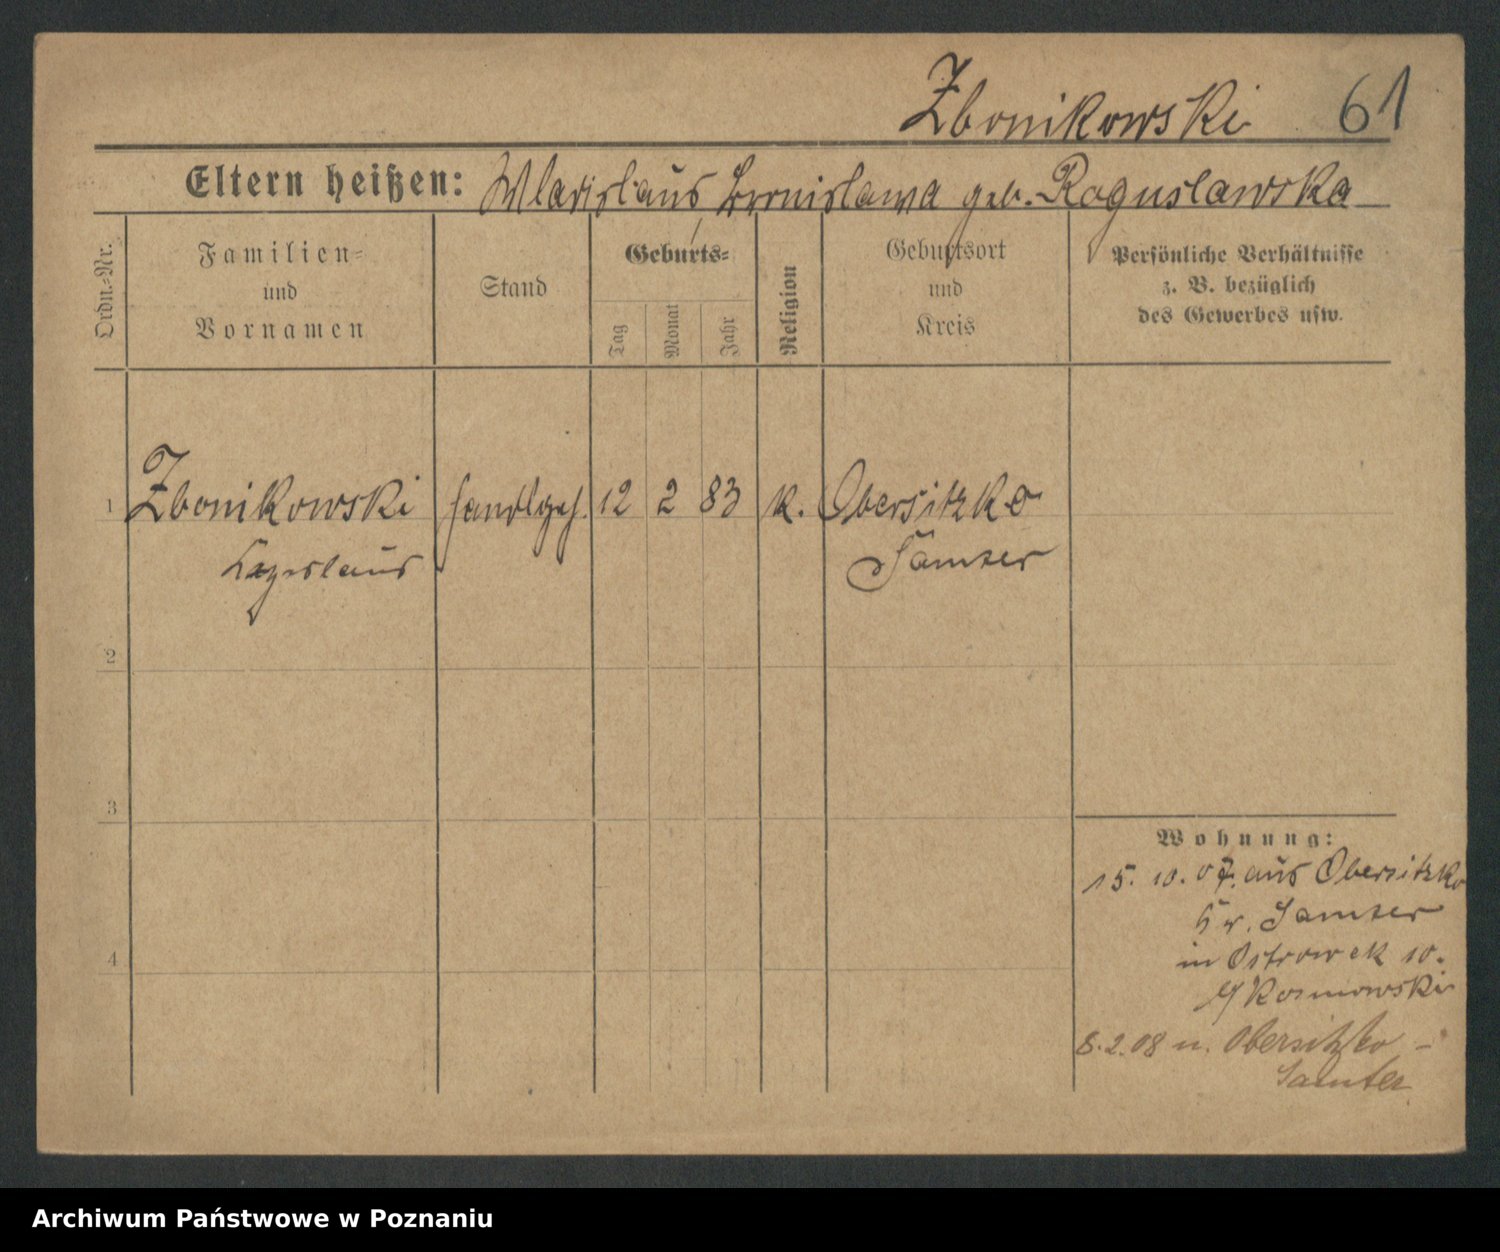 Zbonikowski 61
Eltern heißen: Wladislaus, Bronislawa geb. Roguslawska
Ordn.-Nr.
Familien-
und
Vornamen
Stand
Geburts-
Tag
Monat
Jahr
Religion
Geburtsort
und
Kreis
Persönliche Verhältnisse
z. B. bezüglich
des Gewerbes usw.
1 Zbonikowski Handlgeh. 12 2 83 k. Obersitzko
Samter
2
3
4
Wohnung:
15. 10. 07. aus Obersitzko
Kr. Samter
in Ostrowek 10.
b/ Kosmowski
8.2.08 n. Obersitzko -
Samter
Archiwum Państwowe w Poznaniu